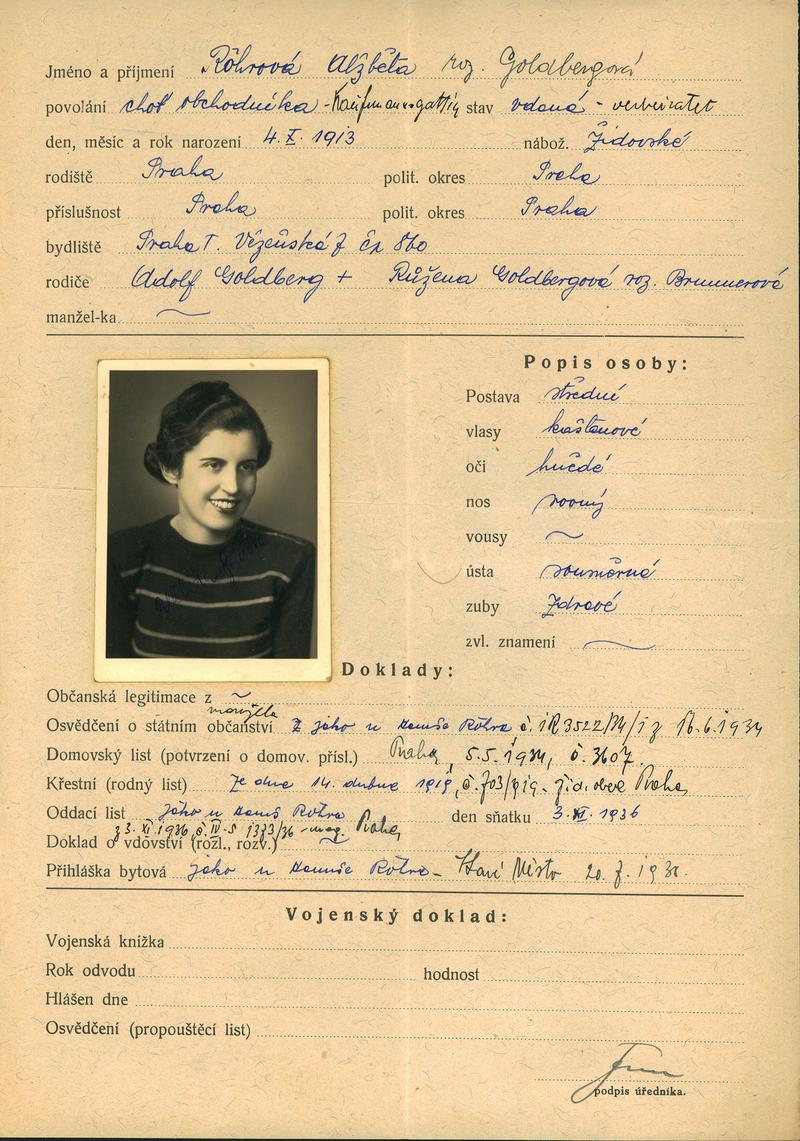 Jméno a příjmení Röhrová Alžběta roz. Goldbergová
povolání choť obchodníka - Kaufmannsgattin stav vdaná - verheiratet
den, měsíc a rok narození 4. X. 1913 nábož. židovské
rodiště Praha polit. okres Praha
příslušnost Praha polit. okres Praha
bydliště Praha I. Vězeňská 7 čp 860
rodiče Adolf Goldberg + Růžena Goldbergová roz. Brunnerová
manžel-ka ~
Popis osoby:
Postava střední
vlasy kaštanové
oči hnědé
nos rovný
vousy ~
ústa souměrná
zuby zdravé
zvl. znamení ~
Doklady:
Občanská legitimace z ~
manžela
Osvědčení o státním občanství jako u Röhra č. 1934
Domovský list (potvrzení o domov. přísl.) Praha, 5.5. 1934, č. 3607.
Křestní (rodný list) ze dne 14. dubna 1919, č. žid. obec Praha
Oddací list jako u Röhra den sňatku 3. XI. 1936
z 3. XI. 1936, č. IV-5 1373/36 - mag. Praha,
Doklad o vdovství (rozl., rozv.) ~
Přihláška bytová jako u Röhra - Staré Město 20. 7. 1938.
Vojenský doklad:
Vojenská knížka
Rok odvodu hodnost
Hlášen dne
Osvědčení (propouštěcí list)
podpis úředníka.